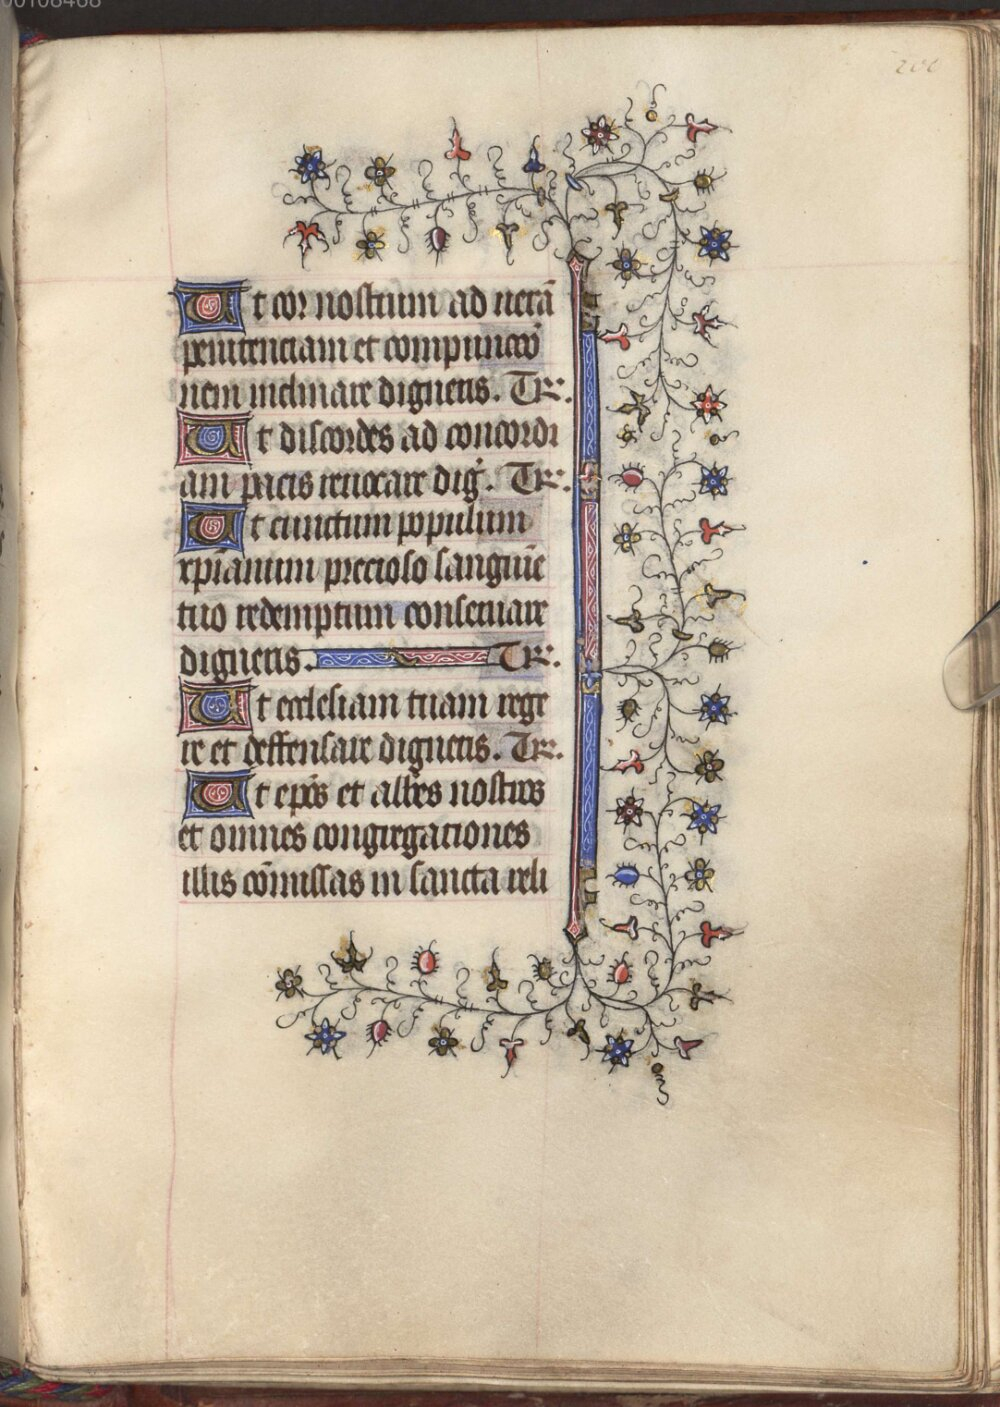 Ut cor nostrum ad uerā
penitenciam et compunctō
nem inclinare digneris. Te r̄.
Ut discordes ad concordi
am pacis reuocare dig̃. Te r̄.
Ut cunctum populum
xp̄ianum precioso sanguīe
tuo redemptum conseruare
digneris. Te r̄.
Ut ecclesiam tuam rege
re et deffensare digneris. Te r̄.
Ut ep̄os et abb̄es nostros
et omnes congregationes
illis cōmissas in sancta reli